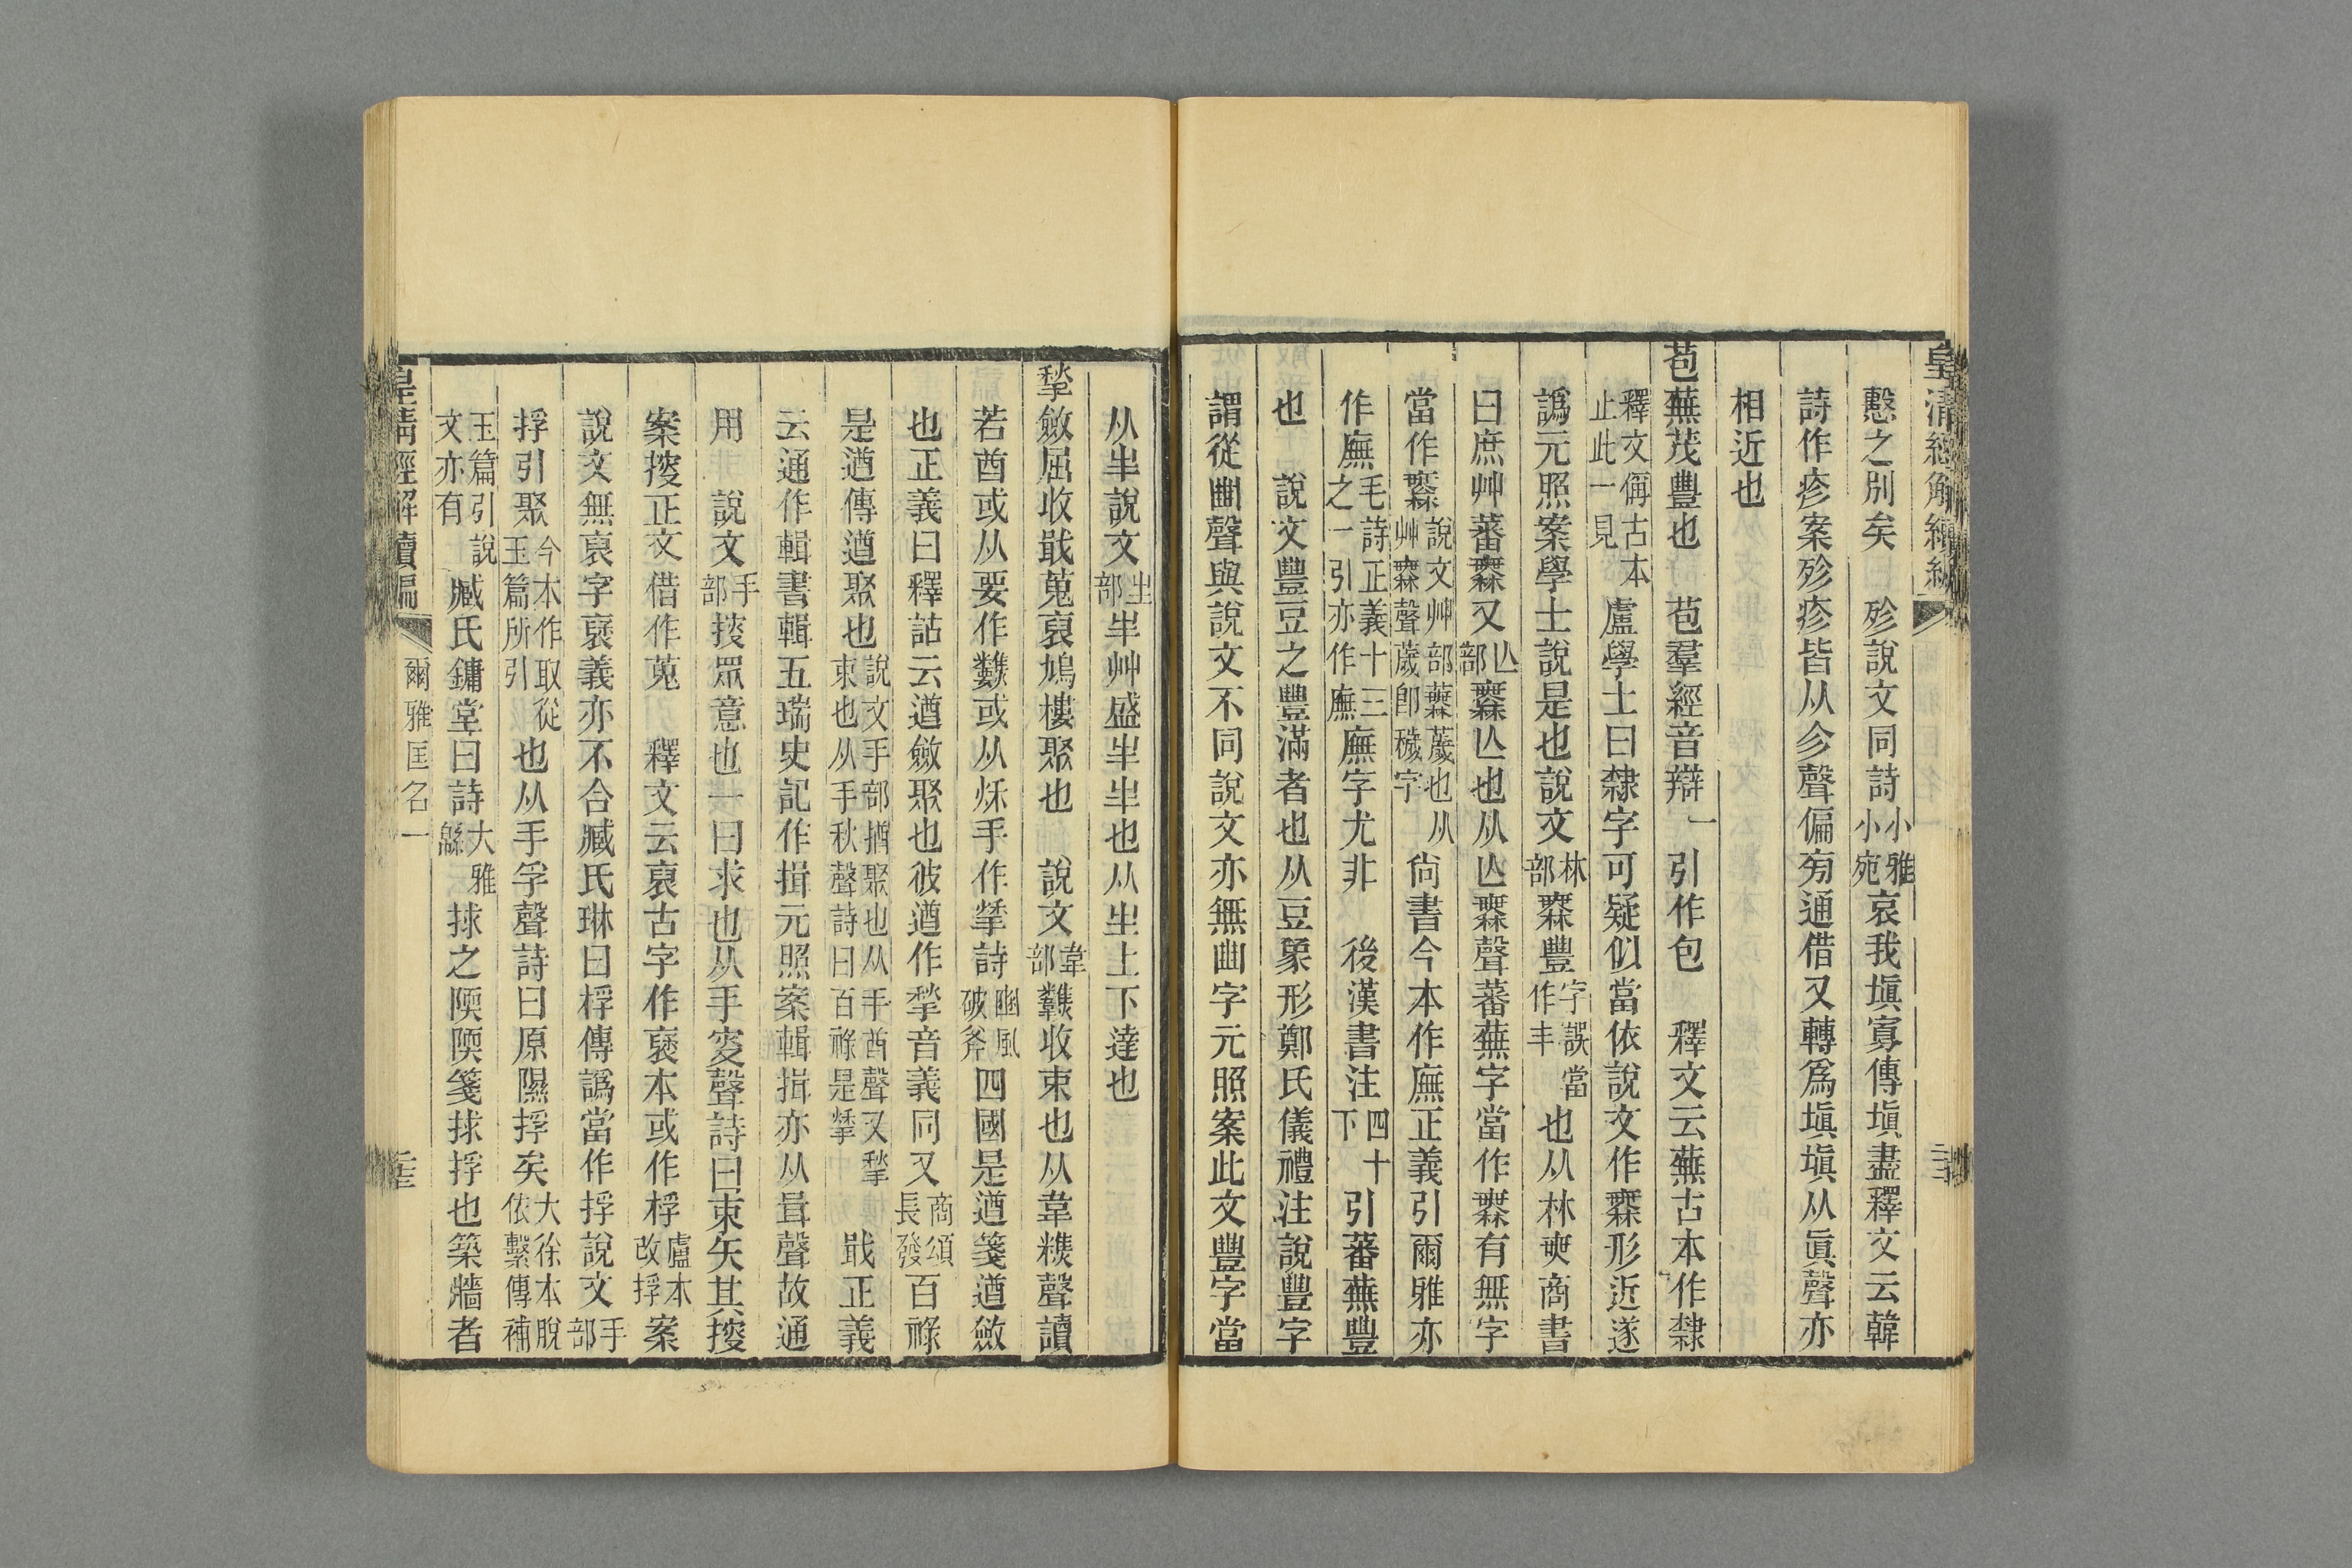 皇清經解續編
慇之別矣　殄說文同詩小雅小宛哀我塡寡傳塡盡釋文云韓
詩作疹案殄疹皆从㐱聲偏旁通借又轉爲塡塡从眞聲亦
相近也
苞蕪茂豐也　苞羣經音辯一引作包　釋文云蕪古本作隸
釋文偁古本止此一見　盧學士曰隸字可疑似當依說文作𣞤形近遂
譌元照案學士說是也說文林部𣞤豐字誤當作丰也从林奭商書
曰庶艸蕃𣞤又亾部𣞤亾也从亾𣞤聲蕃蕪字當作𣞤有無字
當作𣞤說文艸部薉蕪也从艸歲聲薉卽穢字尙書今本作廡正義引爾雅亦
作廡毛詩正義十三之一引亦作廡廡字尤非　後漢書注四十下引蕃蕪豐
也　說文豐豆之豐滿者也从豆象形鄭氏儀禮注說豐字
謂從𠁳聲與說文不同說文亦無𠁳字元照案此文豐字當
从𡴀說文㞢部𡴀艸盛𡴀𡴀也从㞢上下達也
揫斂屈收戢蒐裒鳩樓聚也　說文韋部䪞收束也从韋糕聲讀
若酋或从要作𩏷或从秌手作揫詩豳風破斧四國是遒箋遒斂
也正義曰釋詁云遒斂聚也彼遒作揫音義同又商頌長發百祿
是遒傳遒聚也說文手部揂聚也从手酋聲又揫束也从手秋聲詩曰百祿是揫　戢正義
云通作輯書輯五瑞史記作揖元照案輯揖亦从咠聲故通
用　說文手部搜眾意也一曰求也从手叟聲詩曰束矢其搜
案搜正文借作蒐　釋文云裒古字作褒本或作桴盧本改捊案
說文無裒字褒義亦不合臧氏琳曰桴傳譌當作捊說文手部
捊引聚今本作取從玉篇所引也从手孚聲詩曰原隰捊矣大徐本脫依繫傳補
玉篇引說文亦有　臧氏鏞堂曰詩大雅緜捄之陾陾箋捄捊也築牆者
皇清經解續編　爾雅匡名一